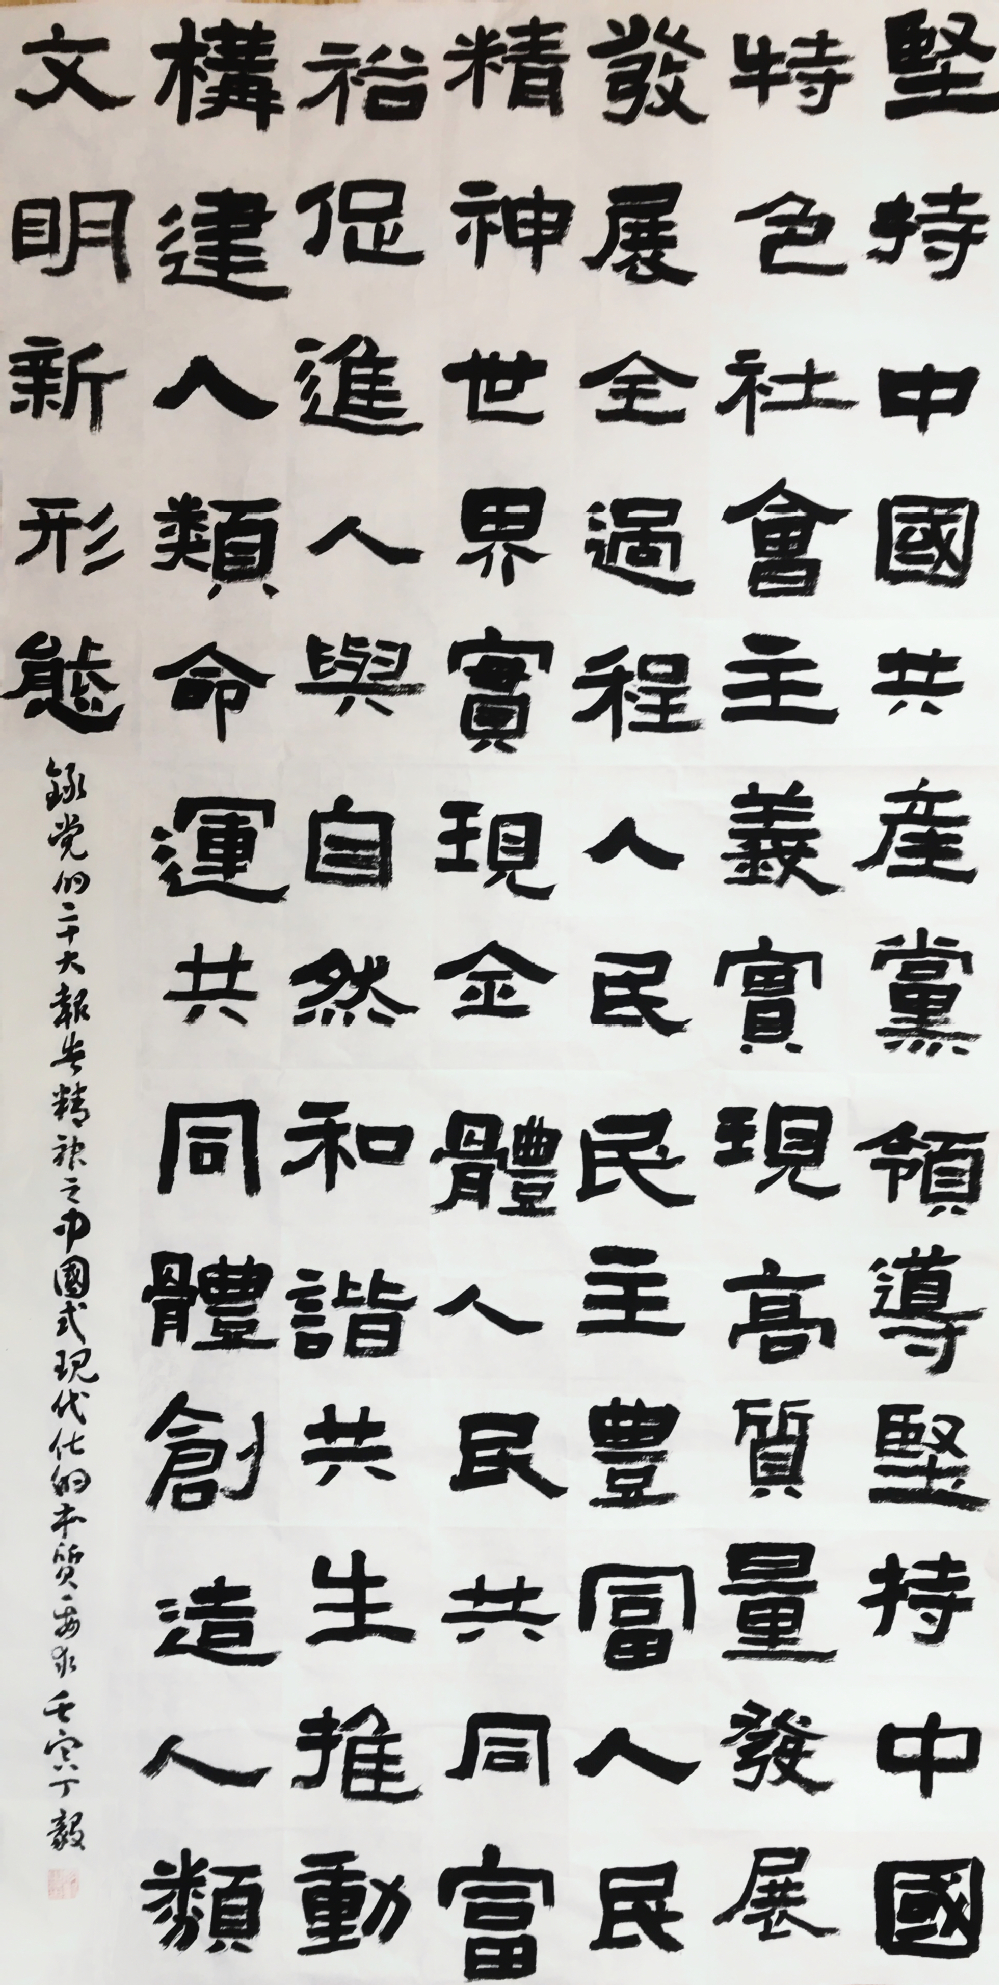 堅持中國共產黨領導堅持中國
特色社會主義實現高質量發展
發展全過程人民民主豐富人民
精神世界實現全體人民共同富
裕促進人與自然和諧共生推動
構建人類命運共同體創造人類
文明新形態
錄党的二十大報告精神之中國式現代化的本質要求壬寅丁毅